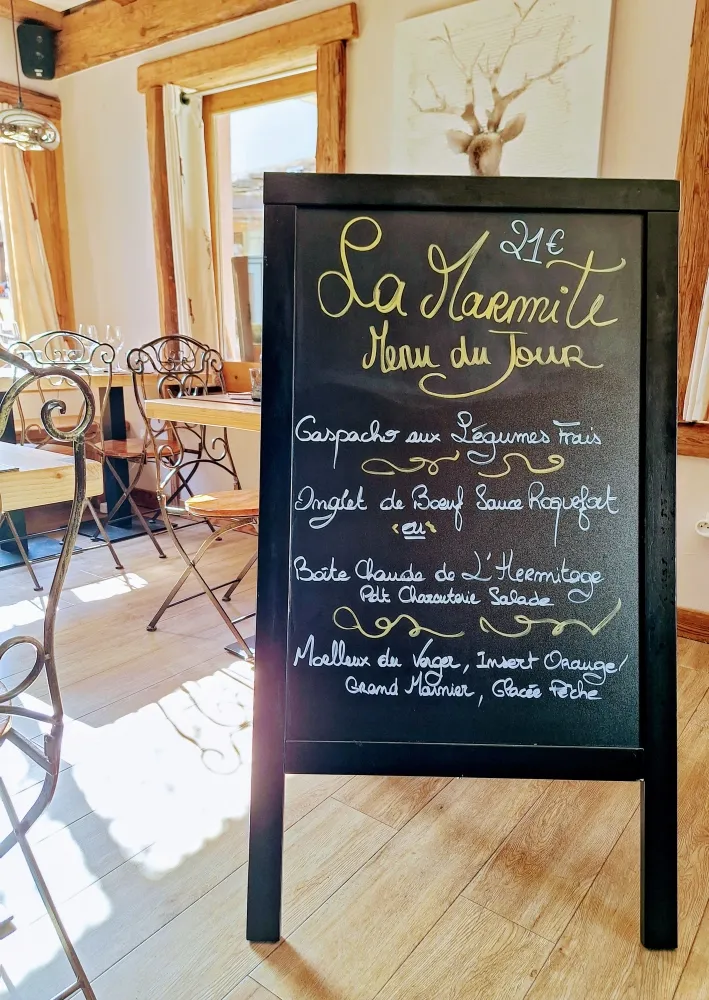 21€
La Marmite
Menu du Jour
Gaspacho aux Légumes Frais
Onglet de Bœuf Sauce Roquefort
ou
Boîte Chaude de L'Hermitage
Pdt Charcuterie Salade
Moelleux du Verger, Insert Orange/
Grand Marnier, Glacée Pêche